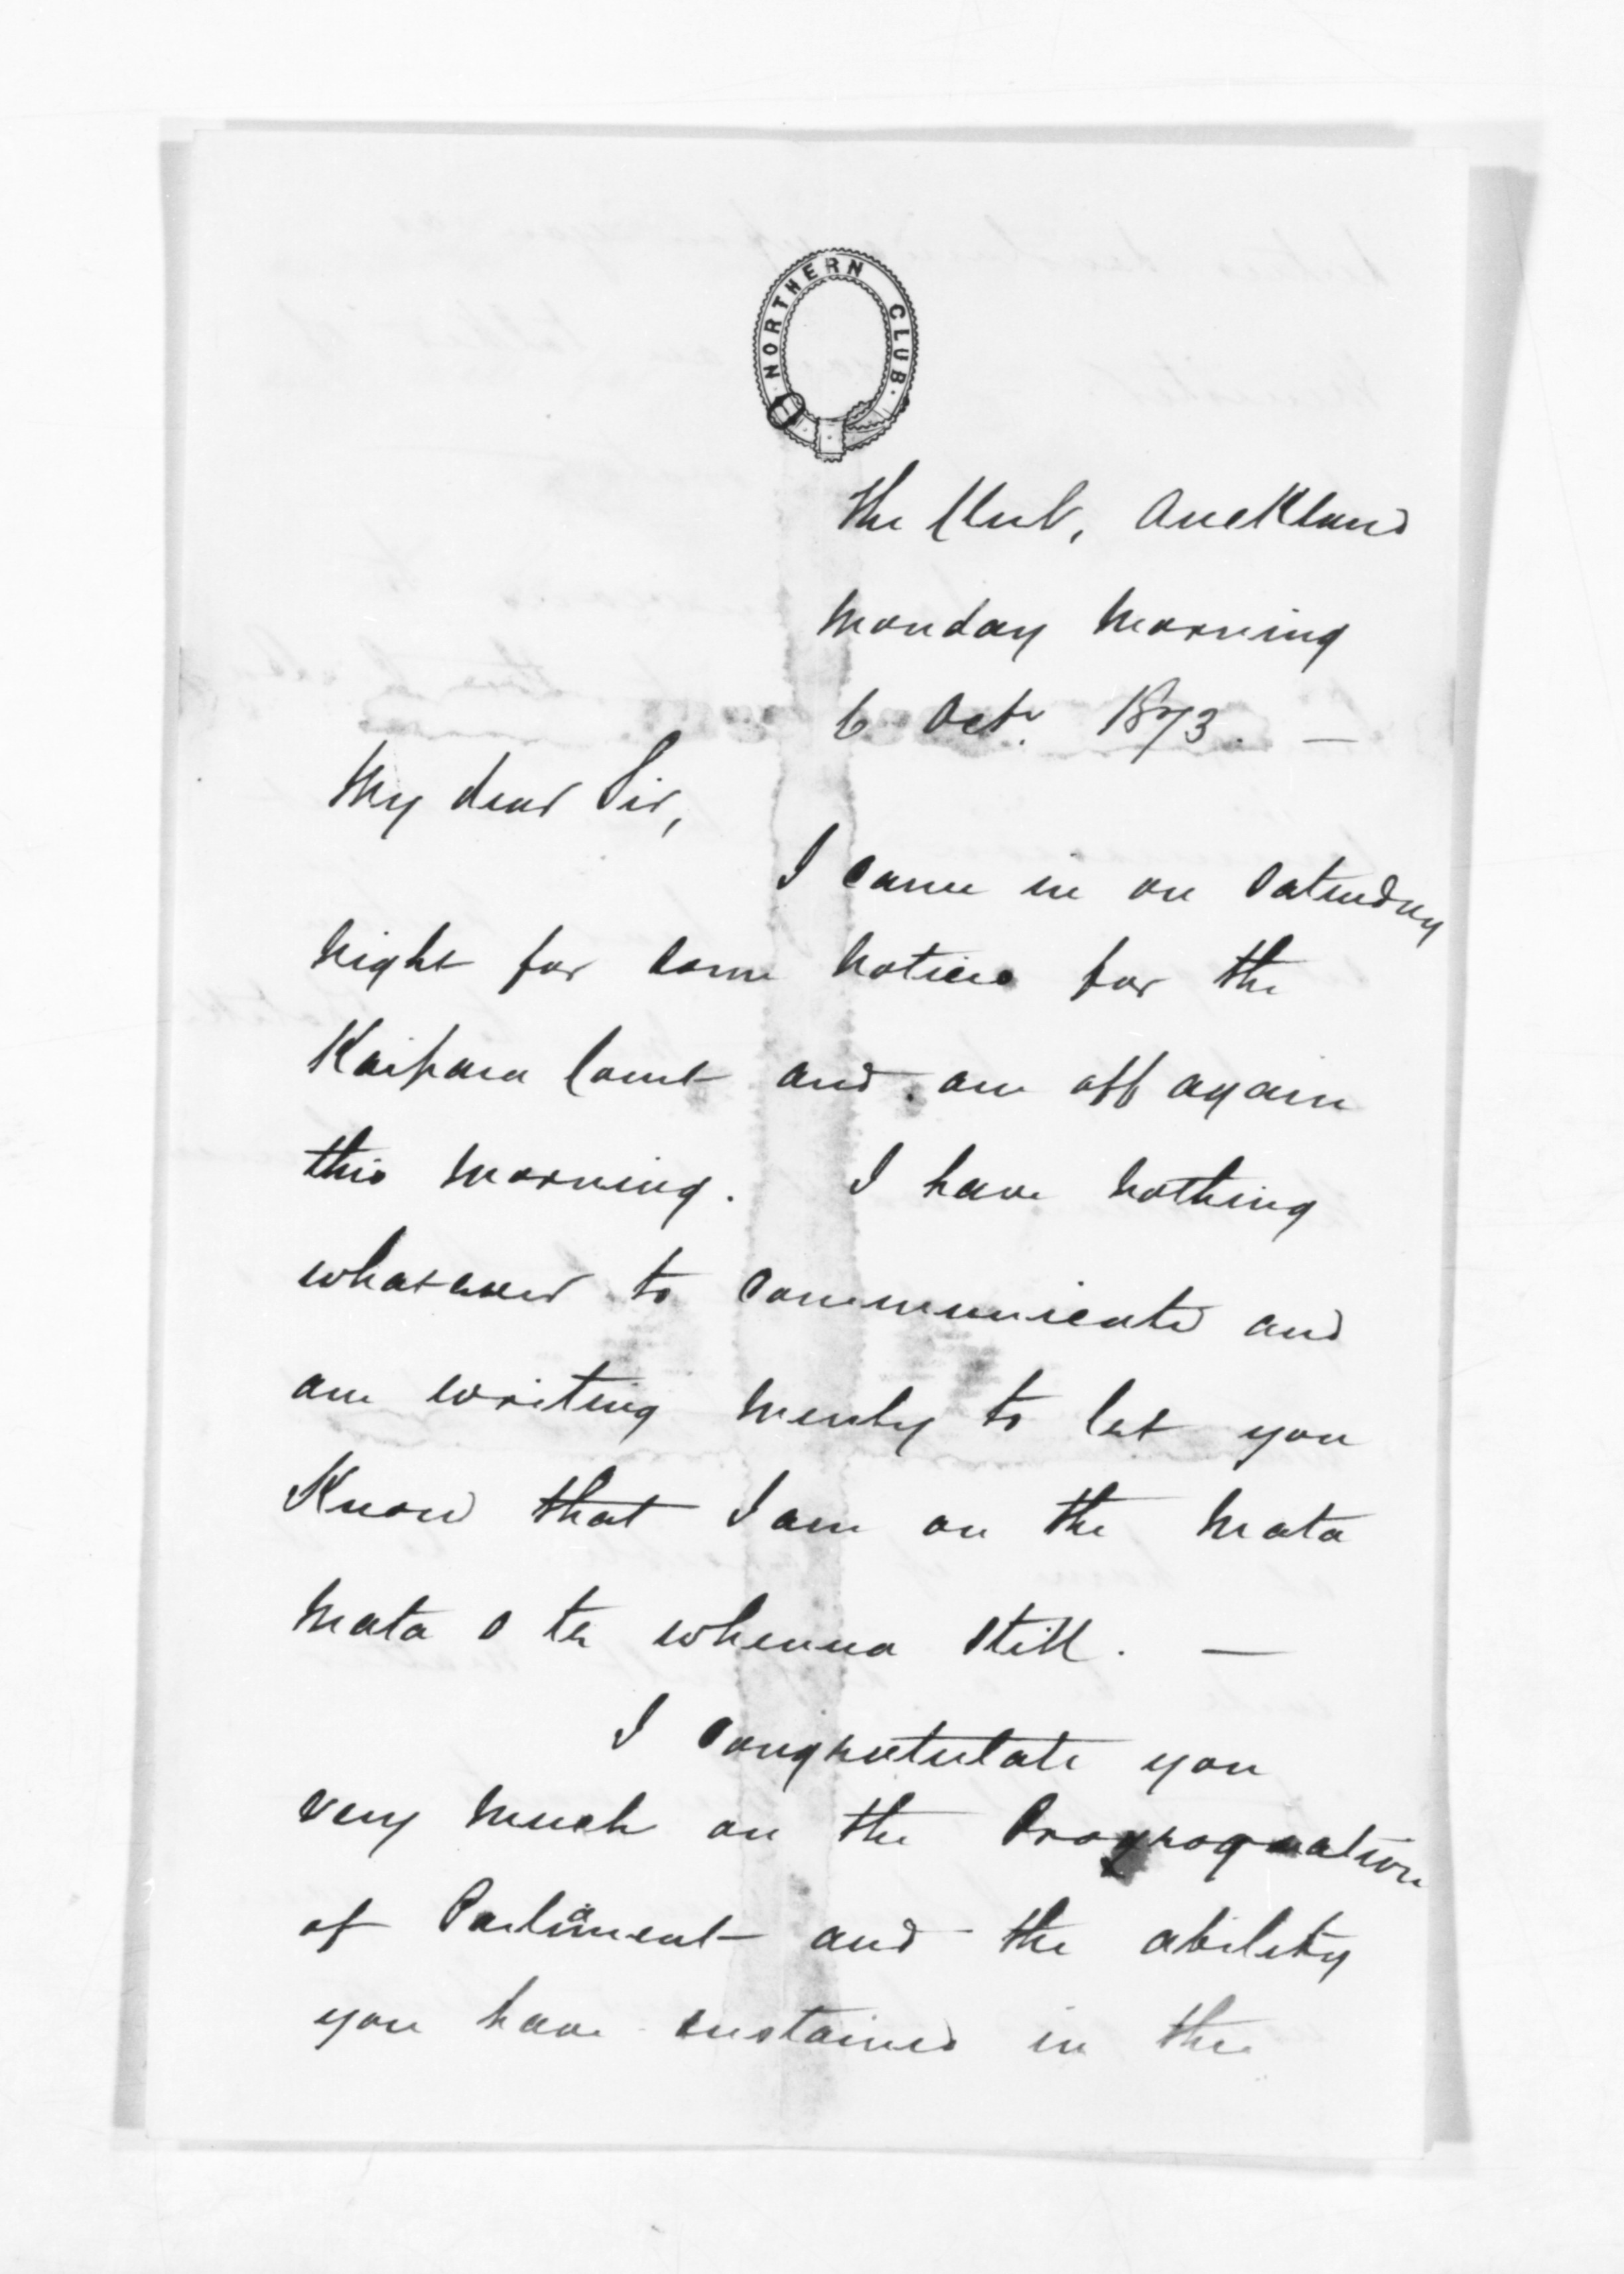 NORTHERN CLUB
The Club, Auckland
Monday Morning
6 Octr. 1873. —
My dear Sir,
I came in on Saturday
night for some notices for the
Kaipara Court and am off again
this morning. I have nothing
whatever to communicate and
am writing merely to let you
Know that I am on the mata
mata o te whenua still. —
I congratulate you
very much on the
of Parliament and the ability
you have sustained in the